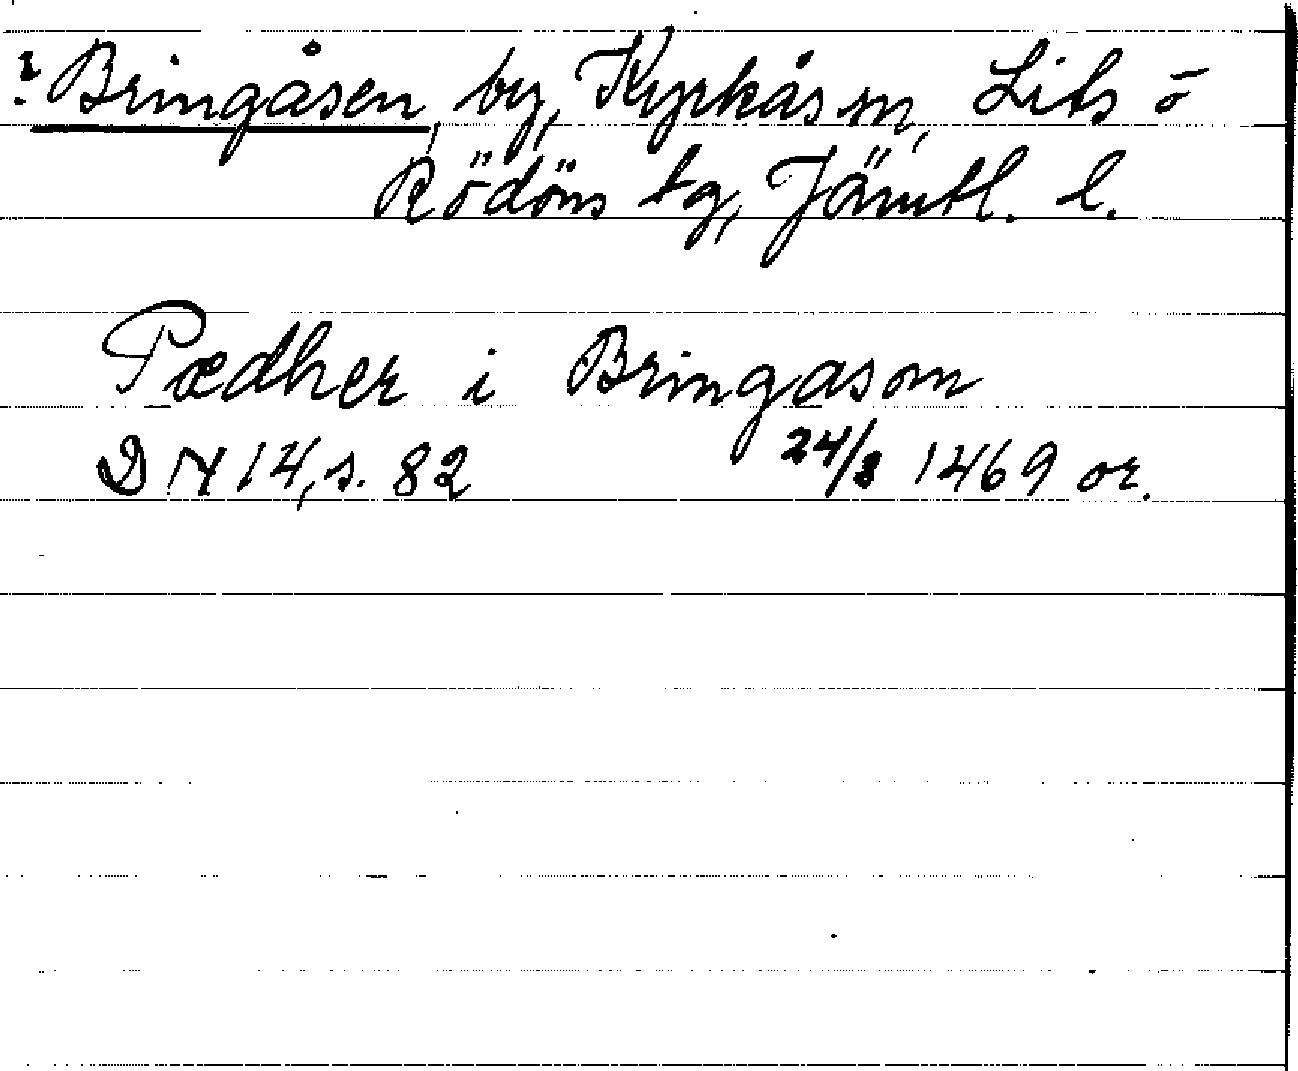 ? Bringåsen, by, Kyrkås sn, Lits o
Rödöns tg, Jämtl. l.
Pædher i Bringasom
DN 14, s. 82 24/3 1469 or.